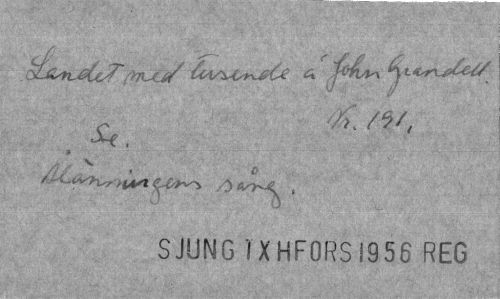 Landet med tusende å John Grandell.
Nr. 191.
Se.
Ålänningens sång.
SJUNG IX HFORS 1956 REG